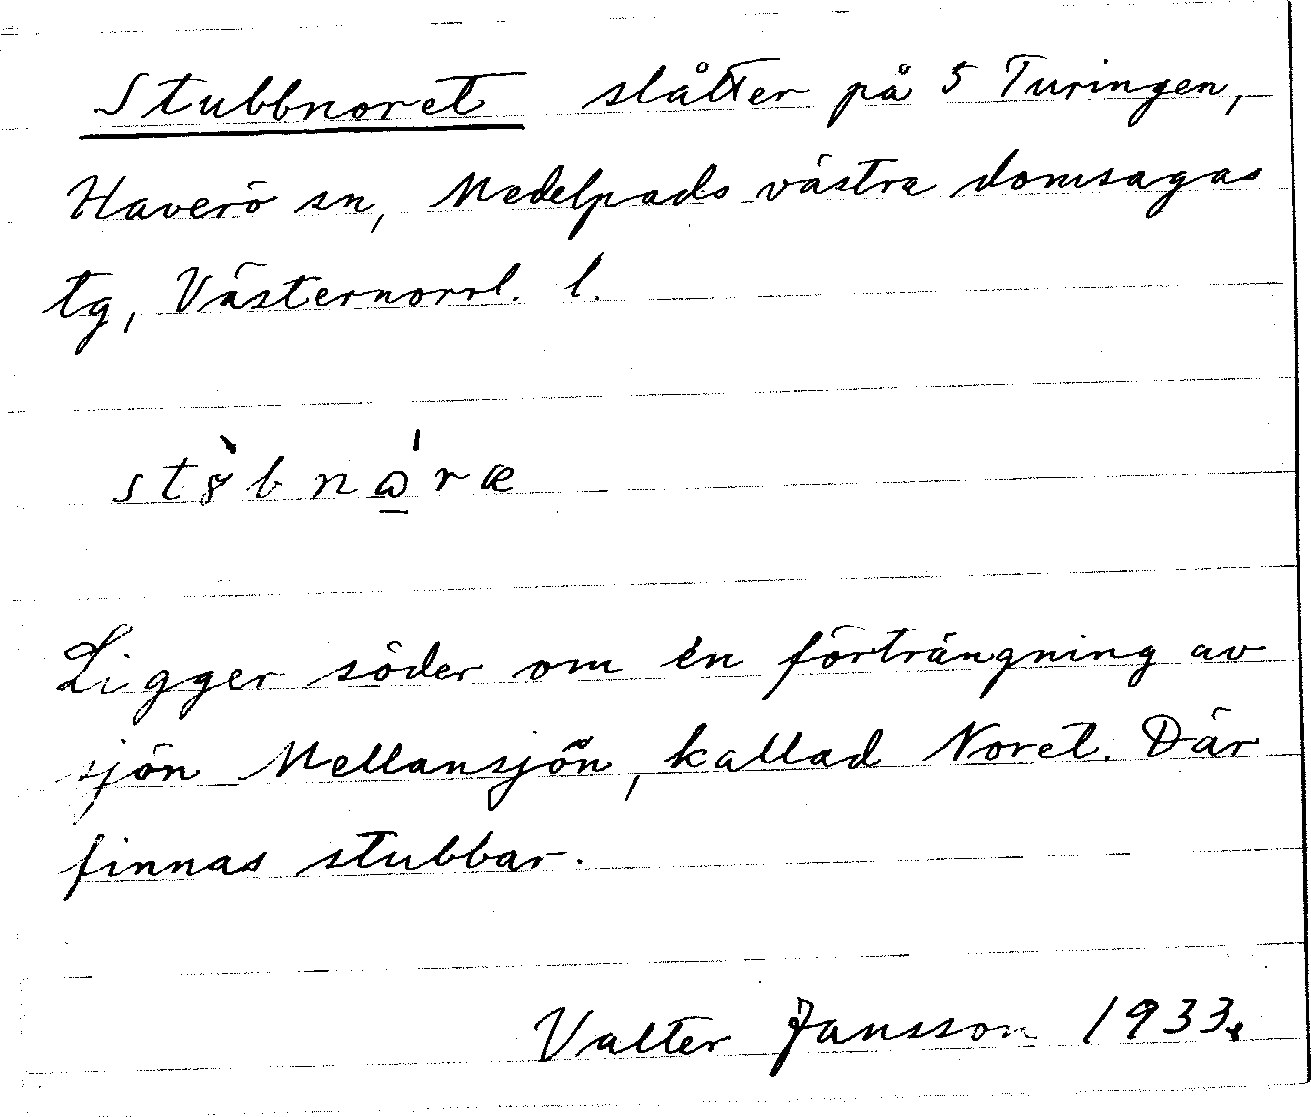 Stubbnoret slåtter på 5 Turingen,
Haverö sn, Medelpads västra domsagas
tg, Västernorrl. l.
st8̀bnⱺ̱́ræ
Ligger söder om en förträngning av
sjön Mellansjön, kallad Noret. Där
finnas stubbar.
Valter Jansson 1933.